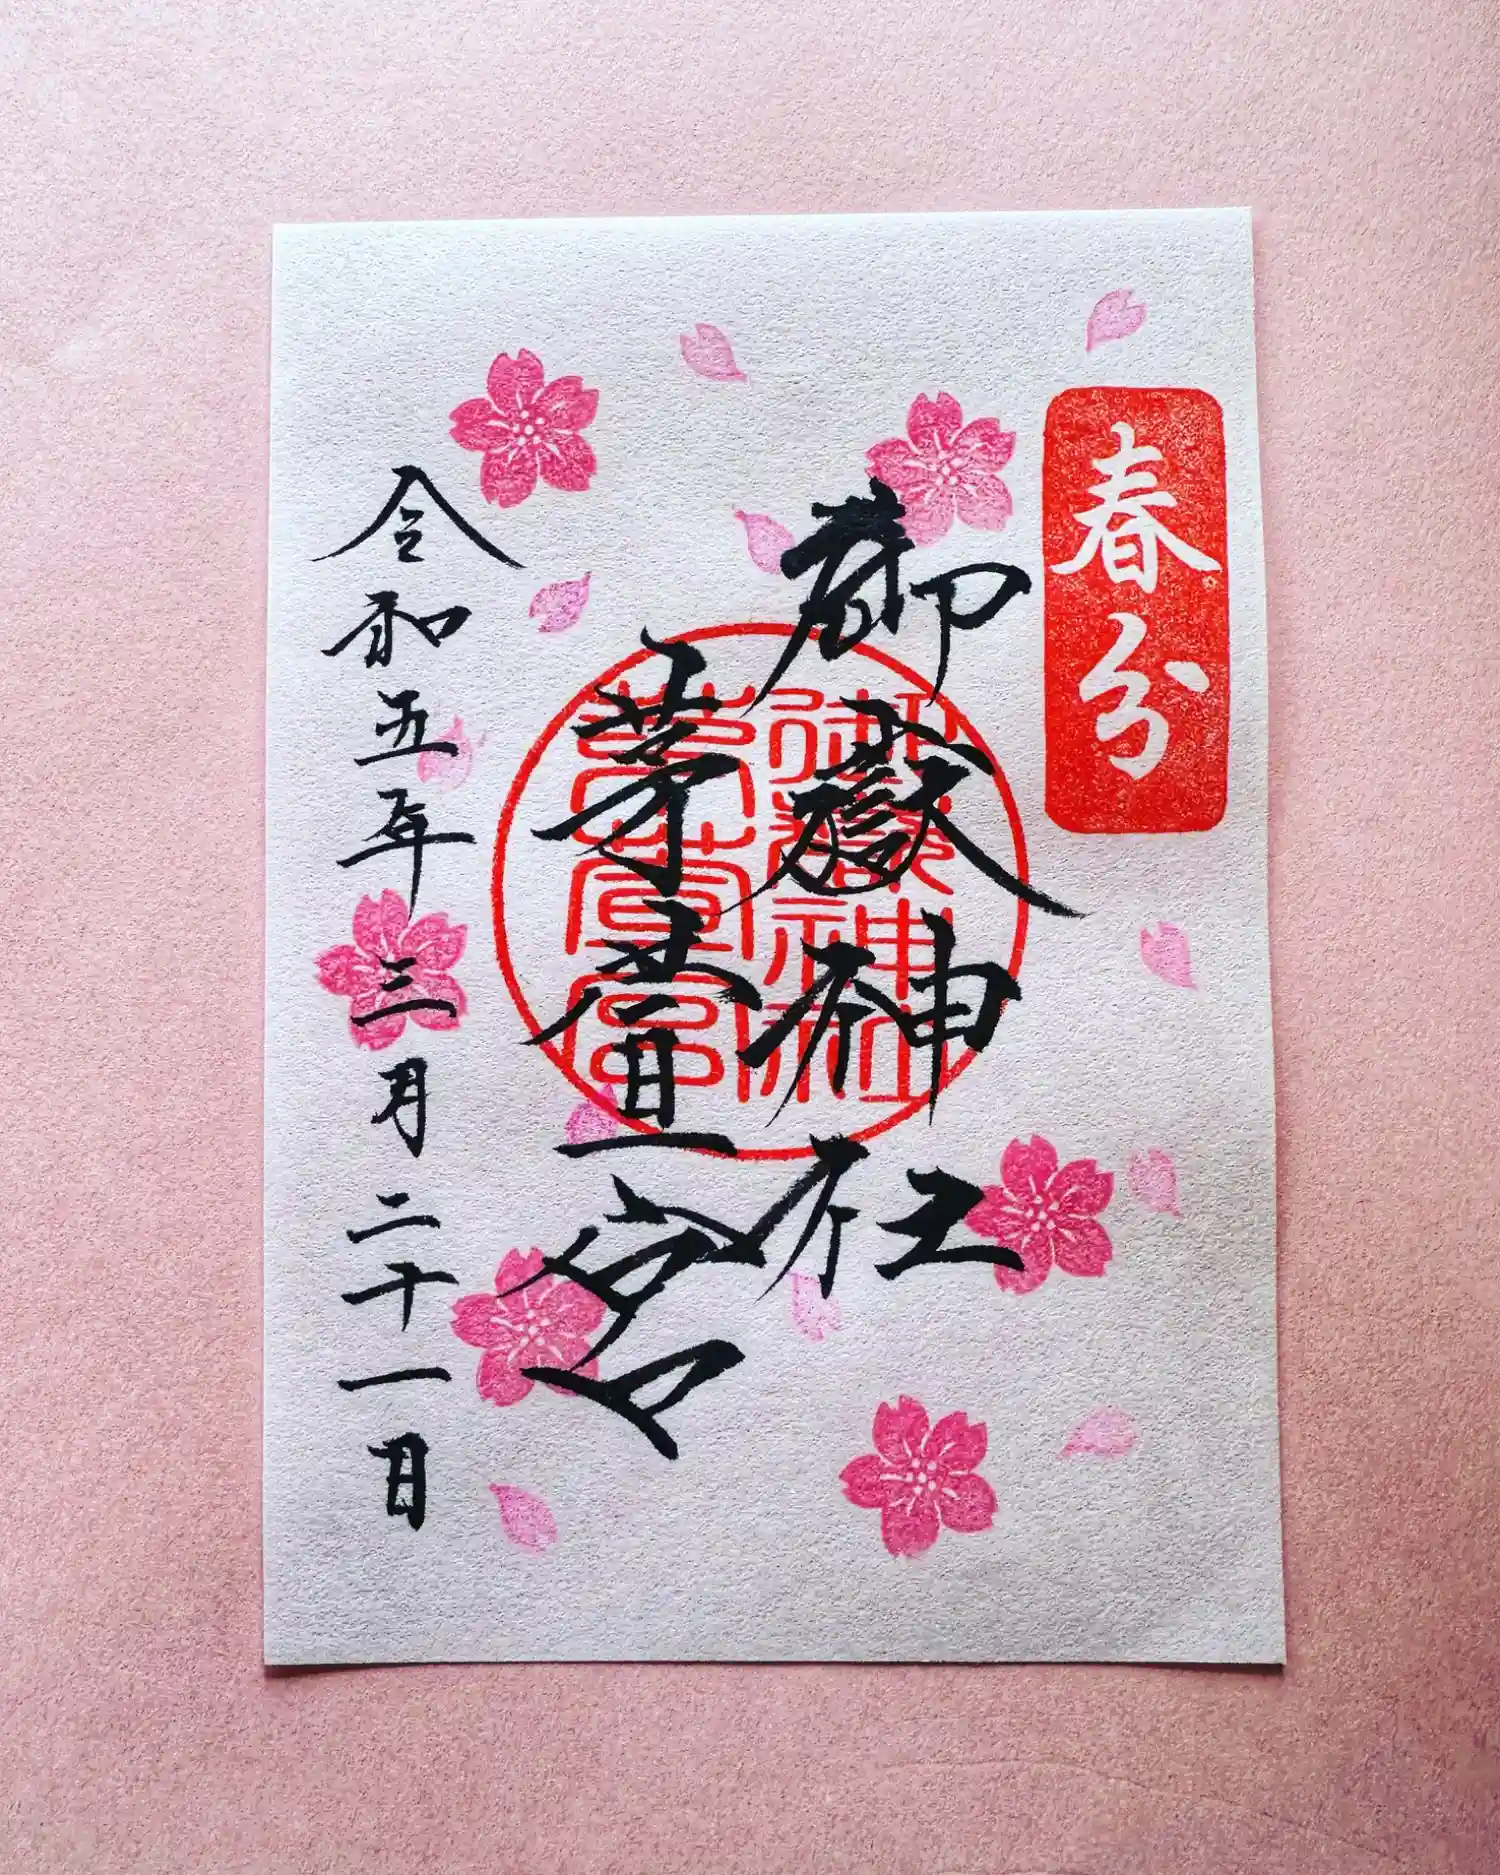 春分
御嶽神社
茅萱宮
御嶽神社
茅萱宮
令和五年三月二十一日